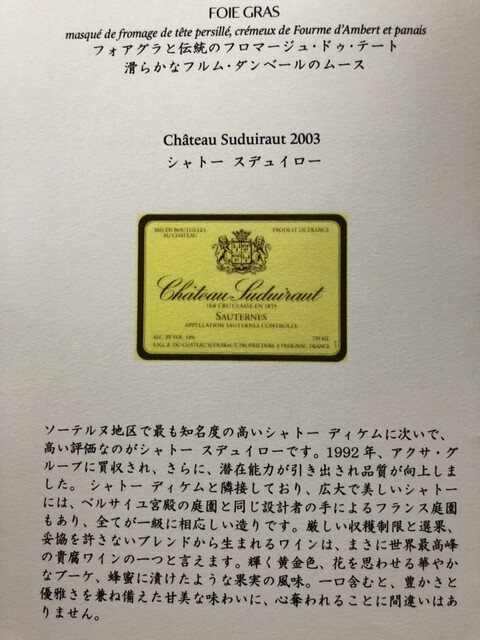 FOIE GRAS
masqué de fromage de tête persillé, crémeux de Fourme d'Ambert et panais
フォアグラと伝統のフロマージュ・ドゥ・テート
滑らかなフルム・ダンベールのムース
Château Suduiraut 2003
シャトー スデュイロー
MIS EN BOUTEILLES
AU CHÂTEAU
PRODUIT DE FRANCE
Château Suduiraut
1ER CRU CLASSÉ EN 1855
SAUTERNES
APPELLATION SAUTERNES CONTRÔLÉE
ALC. BY VOL. 14%
750 ML
S.N.C.F. DU CHÂTEAU SUDUIRAUT, PROPRIÉTAIRE A PREIGNAC, FRANCE
ソーテルヌ地区で最も知名度の高いシャトー ディケムに次いで、
高い評価なのがシャトー スデュイローです。1992年、アクサ・グ
ループに買収され、さらに、潜在能力が引き出され品質が向上しま
した。 シャトー ディケムと隣接しており、広大で美しいシャトー
には、ベルサイユ宮殿の庭園と同じ設計者の手によるフランス庭園
もあり、全てが一級に相応しい造りです。厳しい収穫制限と選果、
妥協を許さないブレンドから生まれるワインは、まさに世界最高峰
の貴腐ワインの一つと言えます。輝く黄金色、花を思わせる華やか
なブーケ、蜂蜜に漬けたような果実の風味。一口含むと、豊かさと
優雅さを兼ね備えた甘美な味わいに、心奪われることに間違いはあ
りません。